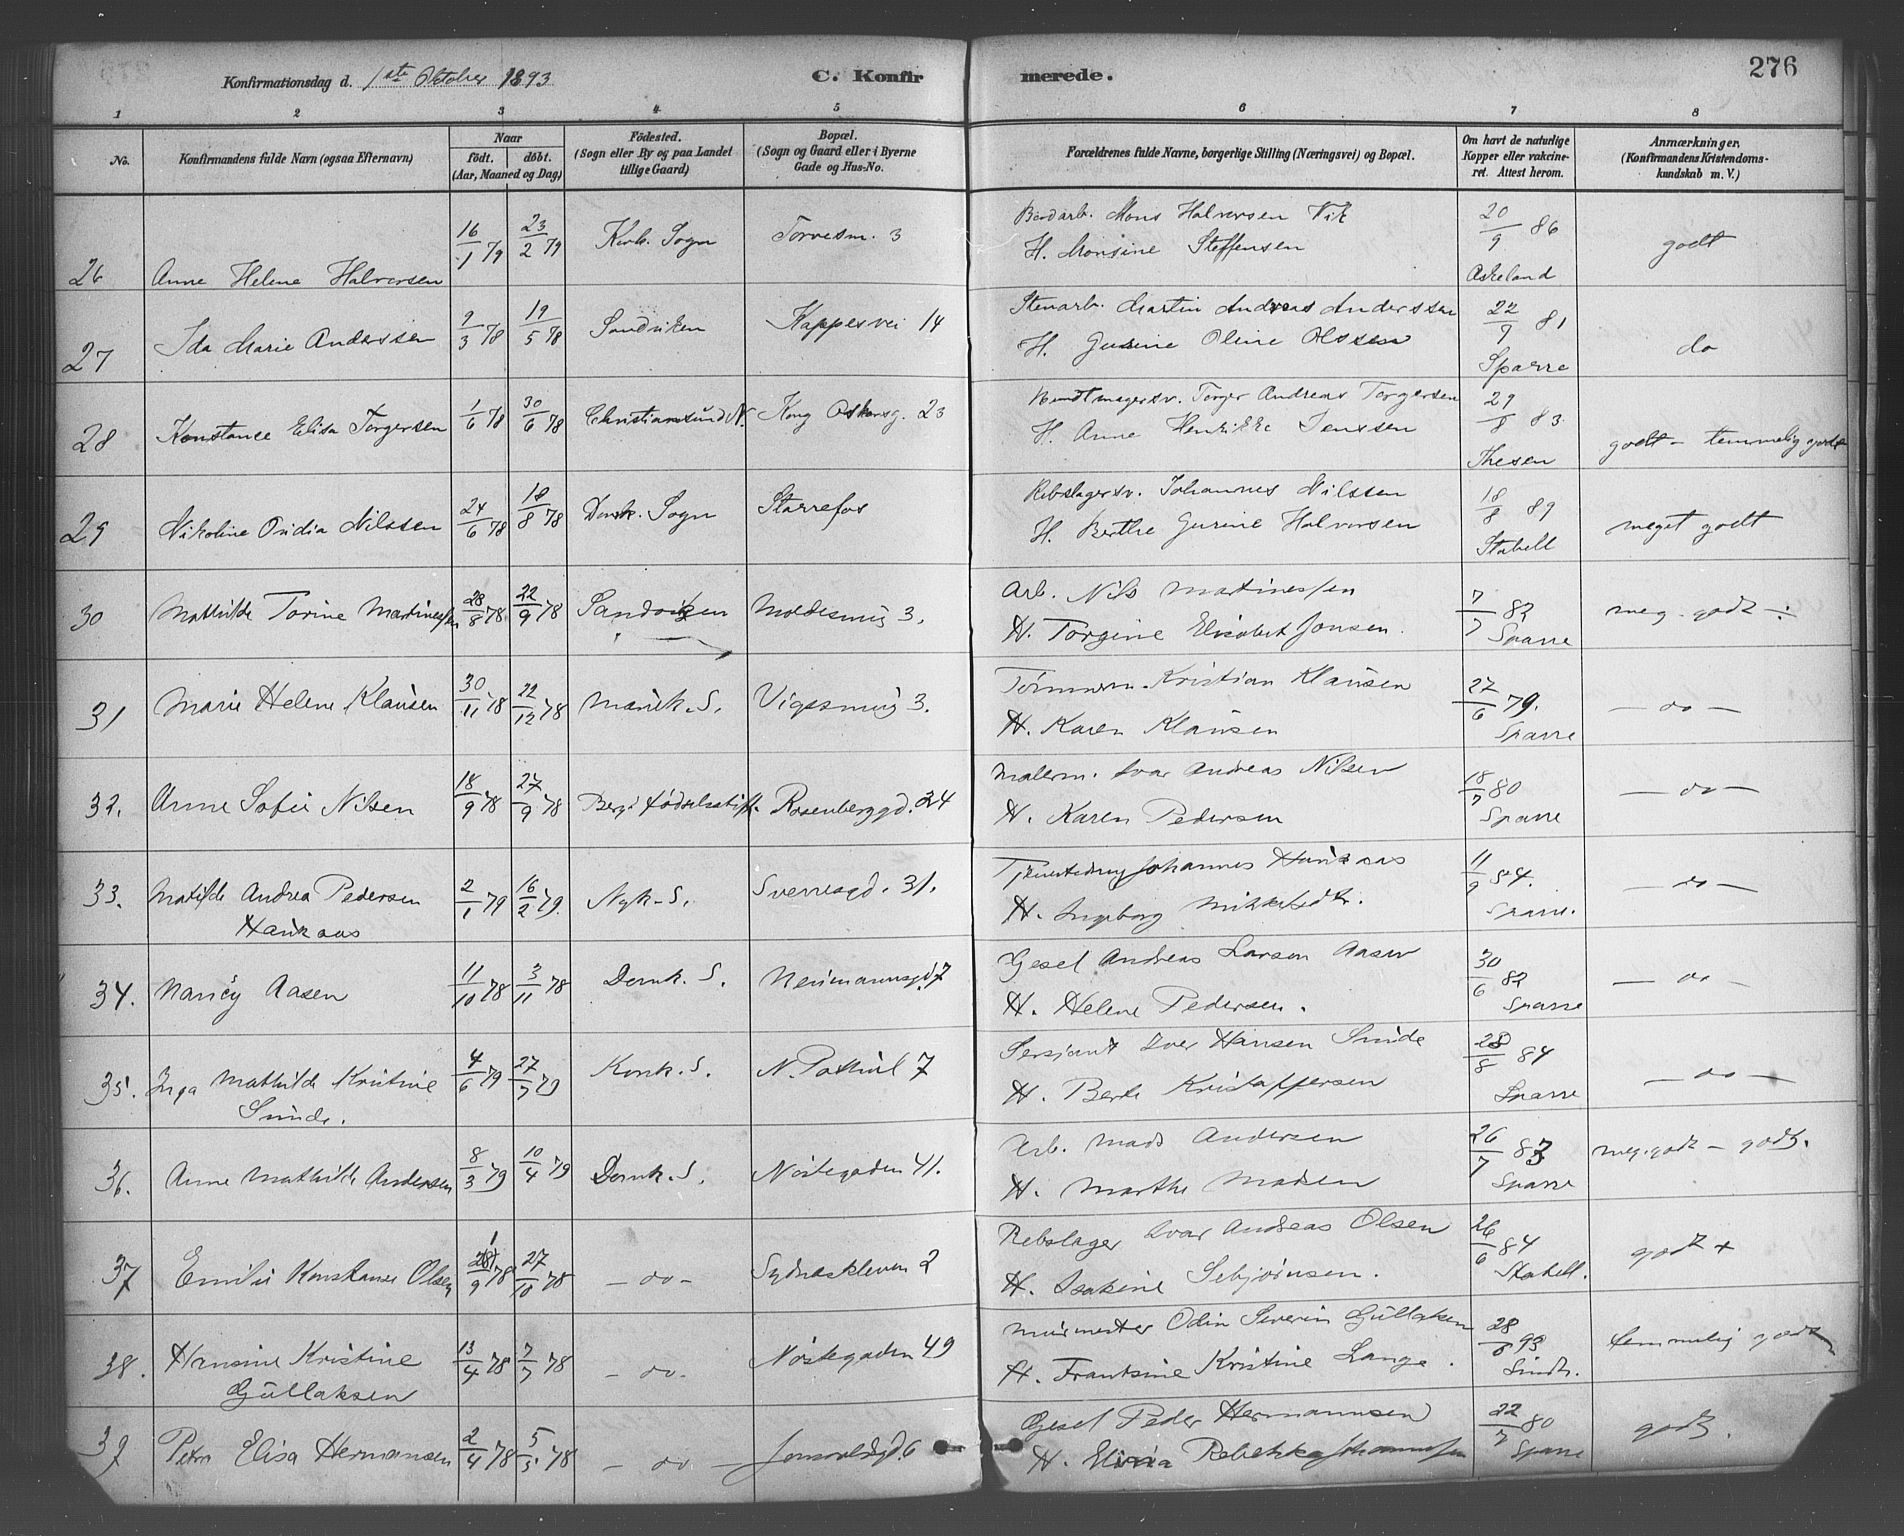 Konfirmationsdag d. 1ste Oktober 1893 C. Konfir merede. 276
1 2 3 4 5 6 7 8
No. Konfirmandens fulde Navn (ogsaa Efternavn) Naar født. døbt. (Aar, Maaned og Dag) Fødested. (Sogn eller By og paa Landet tillige Gaard) Bopæl. (Sogn og Gaard eller i Byerne Gade og Hus-No. Forældrenes fulde Navne, borgerlige Stilling (Næringsvei) og Bopæl. Om havt de naturlige Kopper eller vakcineret. Attest herom. Anmærkninger. (Konfirmandens Kristendomskundskab m. V.)
26 Anne Helene Halvorsen 16/1 79 23/2 79 Kork. Sogn Torvesm. 3 Bordarb. Mons Halvorsen Vik 20/9 86 godt
H. Monsine Steffensen Askeland
27 Ida Marie Anderssen 9/3 78 19/5 78 Sandviken Kappesvei 14 Stenarb. Martin Andreas Anderssen 22/9 81 do
H. Gurine Oline Olssen Sparre
28 Konstance Elisa Torgersen 1/6 78 30/6 78 Christiansund N. Kong Oskarsg. 23 Bundtmagersv. Torger Andreas Torgersen 29/8 83 godt - temmelig godt
H. Anne Henrikke Jenssen Thesen
29 Nikoline Ovidia Nilssen 24/6 78 18/8 78 Domk. Sogn Starrefos Rebslagersv. Johannes Nilssen 18/8 89 meget godt
H. Berthe Gurine Halvorsen Stabell
30 Mathilde Torine Martinessen 28/8 78 22/9 78 Sandviken Moldesmug 3. Arb. Nils Martinessen 7/7 82 meg. godt ÷
H. Torgine Elisabet Jonsen. Sparre
31 Marie Helene Klausen 30/11 78 22/12 78 Mariek. S. Vigssmug 3. Tømmerm. Kristian Klausen 27/6 79. — do —
H. Karen Klausen Sparre
32. Anne Sofie Nilsen 18/9 78 27/9 78 Berg. Fødselsstift. Rosenberggd. 34 Malerm. Ivar Andreas Nilsen 18/7 80 — do —
H. Karen Pedersen Sparre
33. Matilde Andrea Pedersen 2/1 79 16/2 79. Nyk. S. Sverresgd. 31. Johannes Haukaas 11/9 84. — do —
Haukaas H. Ingeborg Mikkelsdtr. Sparre.
34. Nancy Aasen 11/10 78 3/11 78 Domk. S. Neumannsgd. 7 Gesel Andreas Larsen Aasen 30/6 82 — do —
H. Helene Pedersen. Sparre
35. Inga Mathilde Kristine 4/6 79 27/7 79 Kork. S. N. 7 Sersjant Iver Hansen Sunde 28/8 84 — do —
Sunde. H. Berte Kristoffersen Sparre
36. Anne Mathilde Andersen 8/3 79 10/4 79 Domk. S. Nøstegaden 41. Arb. Mads Andersen 26/7 83 meg. godt - godt.
H. Marthe Madsen Sparre
37 Emilie Konstanse Olsen 28/9 78 27/10 78 - do - Sydneskleven 2 Rebslager Ivar Andreas Olsen 26/6 84 godt +
H. Isakine Sebjørnsen. Stabell.
38. Hansine Kristine 13/4 78 7/7 78 - do. Nøstegaden 49 Murmester Odin Severin Gullaksen 28/8 93 temmelig godt
Gullaksen H. Frantsine Kristine Lange.
39 Petra Elisa Hermansen 2/4 78 5/5 78 - do — Jonsvoldsgd. 6 Gesel Peder Hermannsen 22/7 80 godt.
H. Rebekka Johannessen Sparre